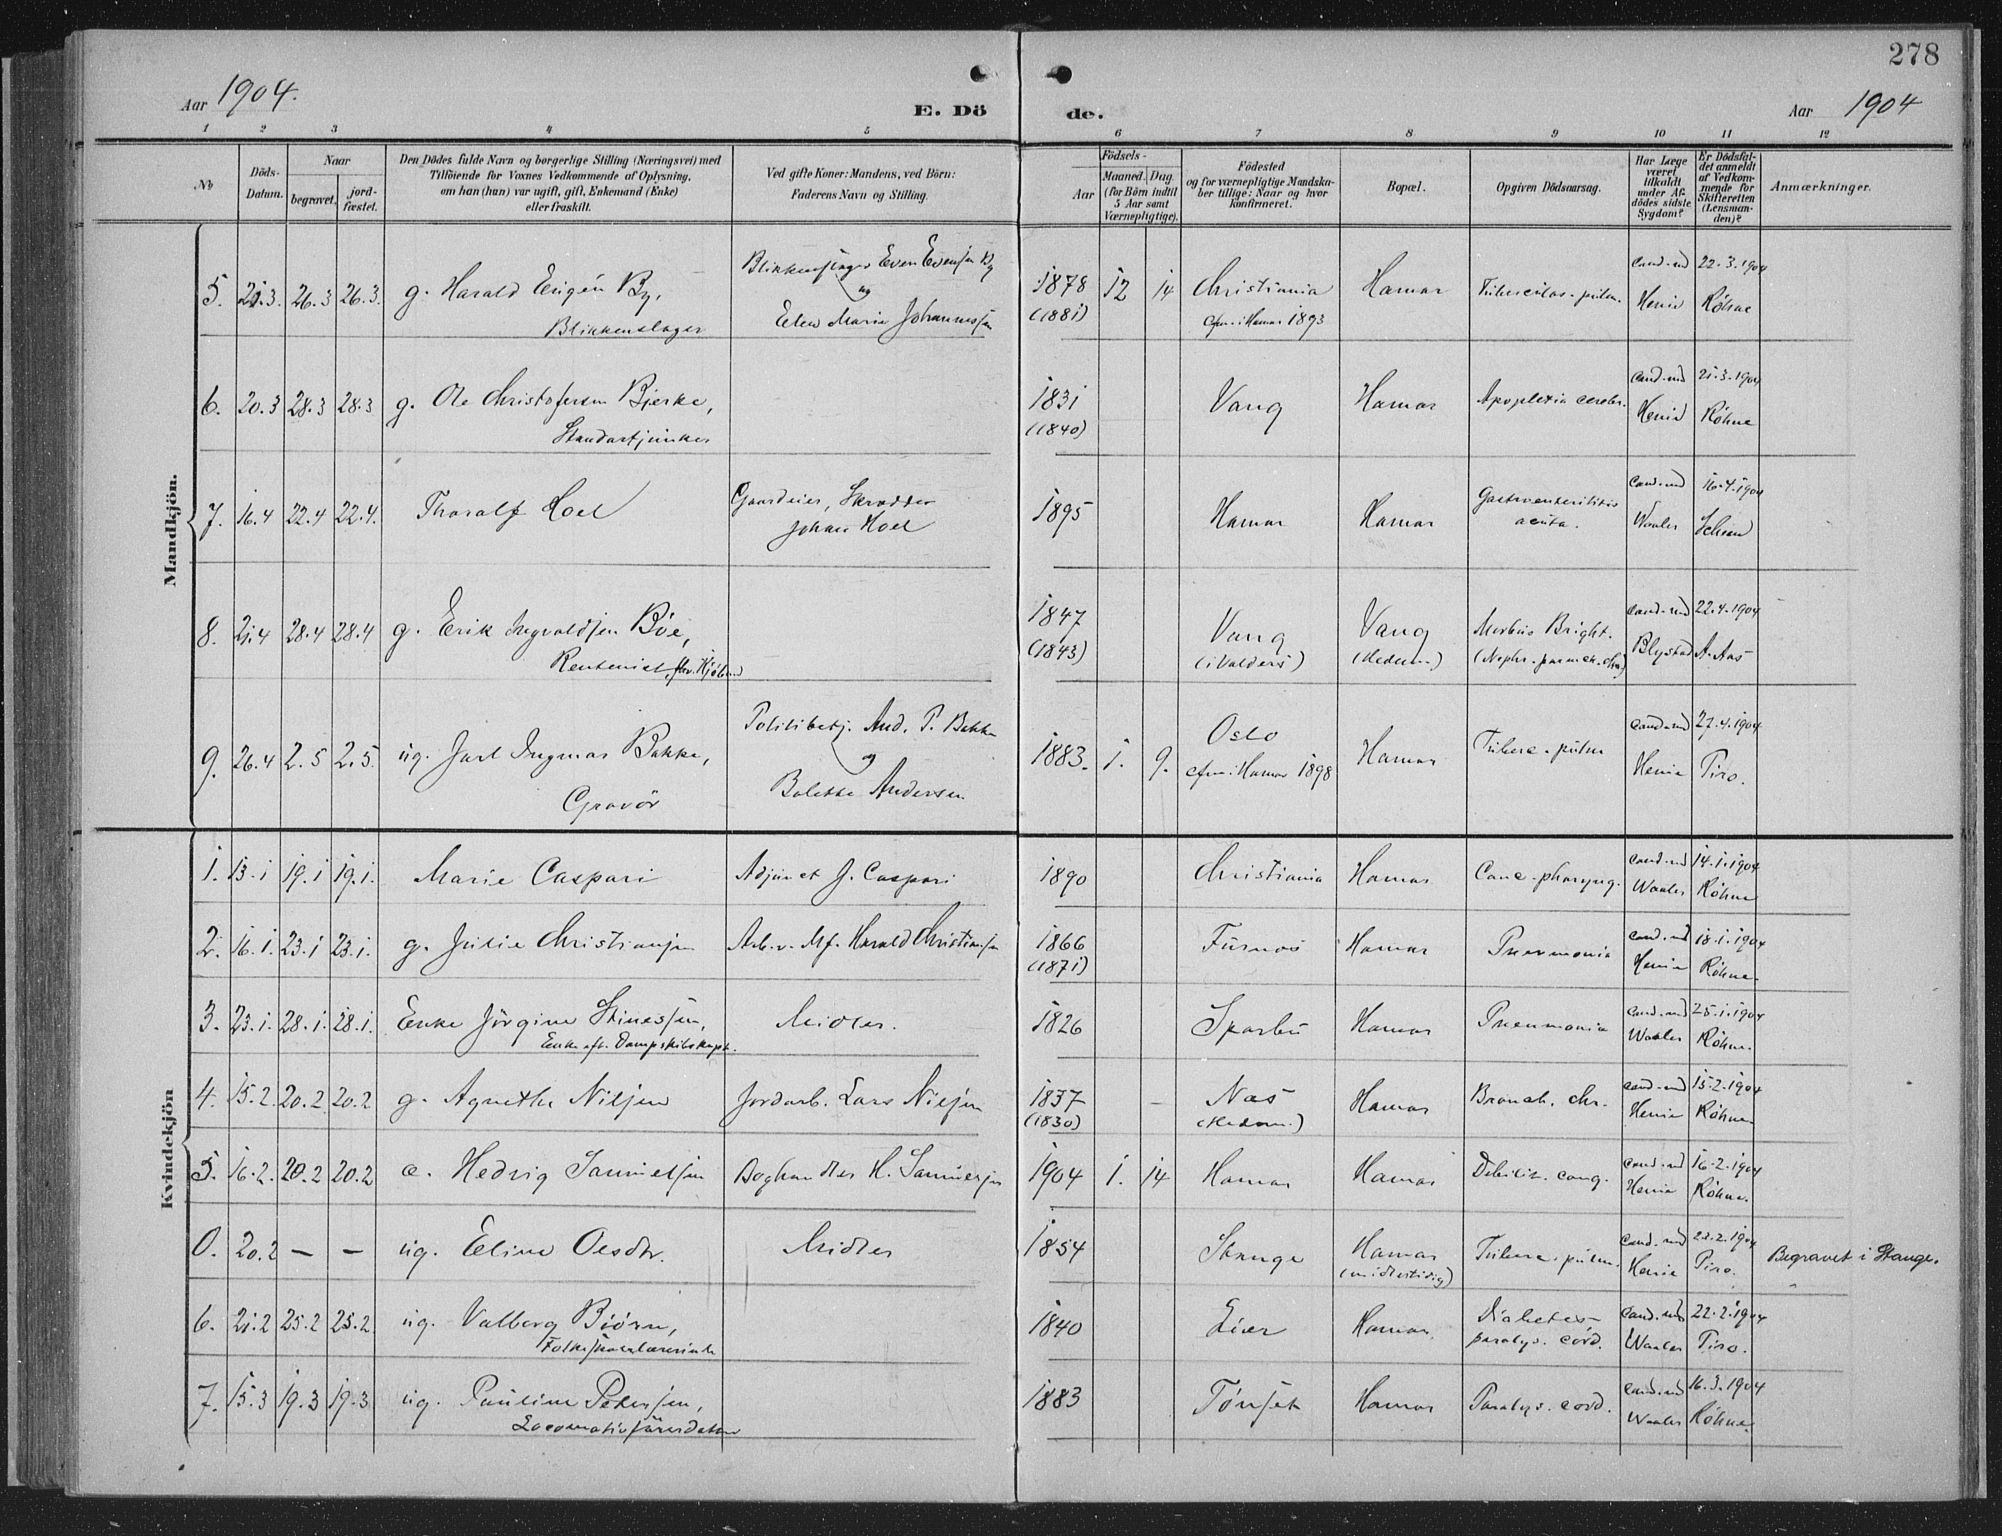 278
Aar 1904.
E. Dö
de.
Aar 1904
1 2 3 4 5 6 7 8 9 10 11 12
No
Döds-
Datum.
Naar
begravet.
jord-
fæstet.
Den Dödes fulde Navn og borgerlige Stilling (Næringsvei) med
Tilföiende for Voxnes Vedkommende af Oplysning,
om han (hun) var ugift, gift, Enkemand (Enke)
eller fraskilt.
Ved gifte Koner: Mandens, ved Börn:
Faderens Navn og Stilling.
Födsels-
Aar
Maaned. Dag.
(for Börn indtil
5 Aar samt
Værnepligtige).
Födested
og for værnepligtige Mandska-
ber tillige: Naar og hvor
konfirmeret.
Bopæl.
Opgiven Dödsaarsag.
Har Læge
været
tilkaldt
under Af-
dödes sidste
Sygdom?
Er Dödsfal-
det anmeldt
af Vedkom-
mende for
Skifteretten
(Lensman-
den)?
Anmærkninger.
Mandkjön.
5. 21.3. 26.3 26.3. g. Harald Eugén By,
Blikkenslager
Blikkenslager Even Evensen By
og
Elen Marie Johannessen
1878 12 14
(1881)
Christiania
cfm. i Hamar 1893
Hamar
Tuberculos. pulm.
cand. md
Henie
22.3.1904
Röhne
6. 20.3 28.3 28.3 g. Ole Christofersen Bjerke,
Standartjunker
1831
(1840)
Vang
Hamar
Apoplexia cerebr.
cand. md
Henie
21.3.1904
Röhne
7. 16.4 22.4 22.4. Thoralf Hoel
Gaardeier, Skrædder
Johan Hoel
1895
Hamar
Hamar
Gastroenteritis
acuta.
cand. md
Waaler
16.4.1904
8. 21.4 28.4 28.4 g. Erik Ingvaldsen Böe,
Rentenist,
1847
(1843)
Vang
(i Valders)
Vang
(Hedem.)
Morbus Bright.
cand. md
Blystad
22.4.1904
A. Aas
9. 26.4 2.5 2.5. ug. Jarl Ingmar Bakke,
Gravör
Politibetj. And. P. Bakke
og
Bolette Andersen
1883. 1. 9.
Oslo
cfm. i Hamar 1898
Hamar
Tuberc. pulm
cand. md
Henie
27.4.1904
Tiro.
Kvindekjön
1. 13.1 19.1 19.1. Marie Caspari
Adjunct J. Caspari
1890
Christiania
Hamar
Canc. pharyng.
cand. md
Waaler
14.1.1904
Röhne
2. 16.1. 23.1 23.1. g. Julie Christiansen
Arb. v. Mf. Harald Christiansen
1866
(1871)
Furnes
Hamar
Pneumonia
cand. md
Henie
18.1.1904
Röhne.
3. 23.1. 28.1. 28.1. Enke Jörgine Stinessen,
Enke eft. Dampskibskapt.
Midler.
1826
Sparbu
Hamar
Pneumonia
cand. md
Waaler
25.1.1904
Röhne.
4. 15.2 20.2 20.2 g. Agnethe Nilsen
Jordarb. Lars Nilsen
1837
(1830)
Næs
(Hedem.)
Hamar
Bronch. chr.
cand. md
Henie
15.2.1904
Röhne
5. 16.2. 20.2 20.2 e. Hedvig Samuelsen
Boghandler H. Samuelsen
1904 1. 14
Hamar
Hamar
Debilit. cong.
cand. md
Henie
16.2.1904
Röhne.
0. 20.2 — — ug. Eline Olsdtr.
Midler
1854
Stange
Hamar
(midlertidig)
Tuberc. pulm.
cand. md
Henie
22.2.1904
Tiro.
Begravet i Stange.
6. 21.2 25.2 25.2 ug. Valborg Björn,
Folkeskolelærerinde
1840
Lier
Hamar.
Diabetes-
paralys. cord.
cand. md
Waaler
22.2.1904
Tiro.
7. 15.3 19.3 19.3 ug. Pauline Petersen,
Locomotivförerdatter
1883
Tönset
Hamar
Paralys. cord.
cand. md
Waaler
16.3.1904
Röhne